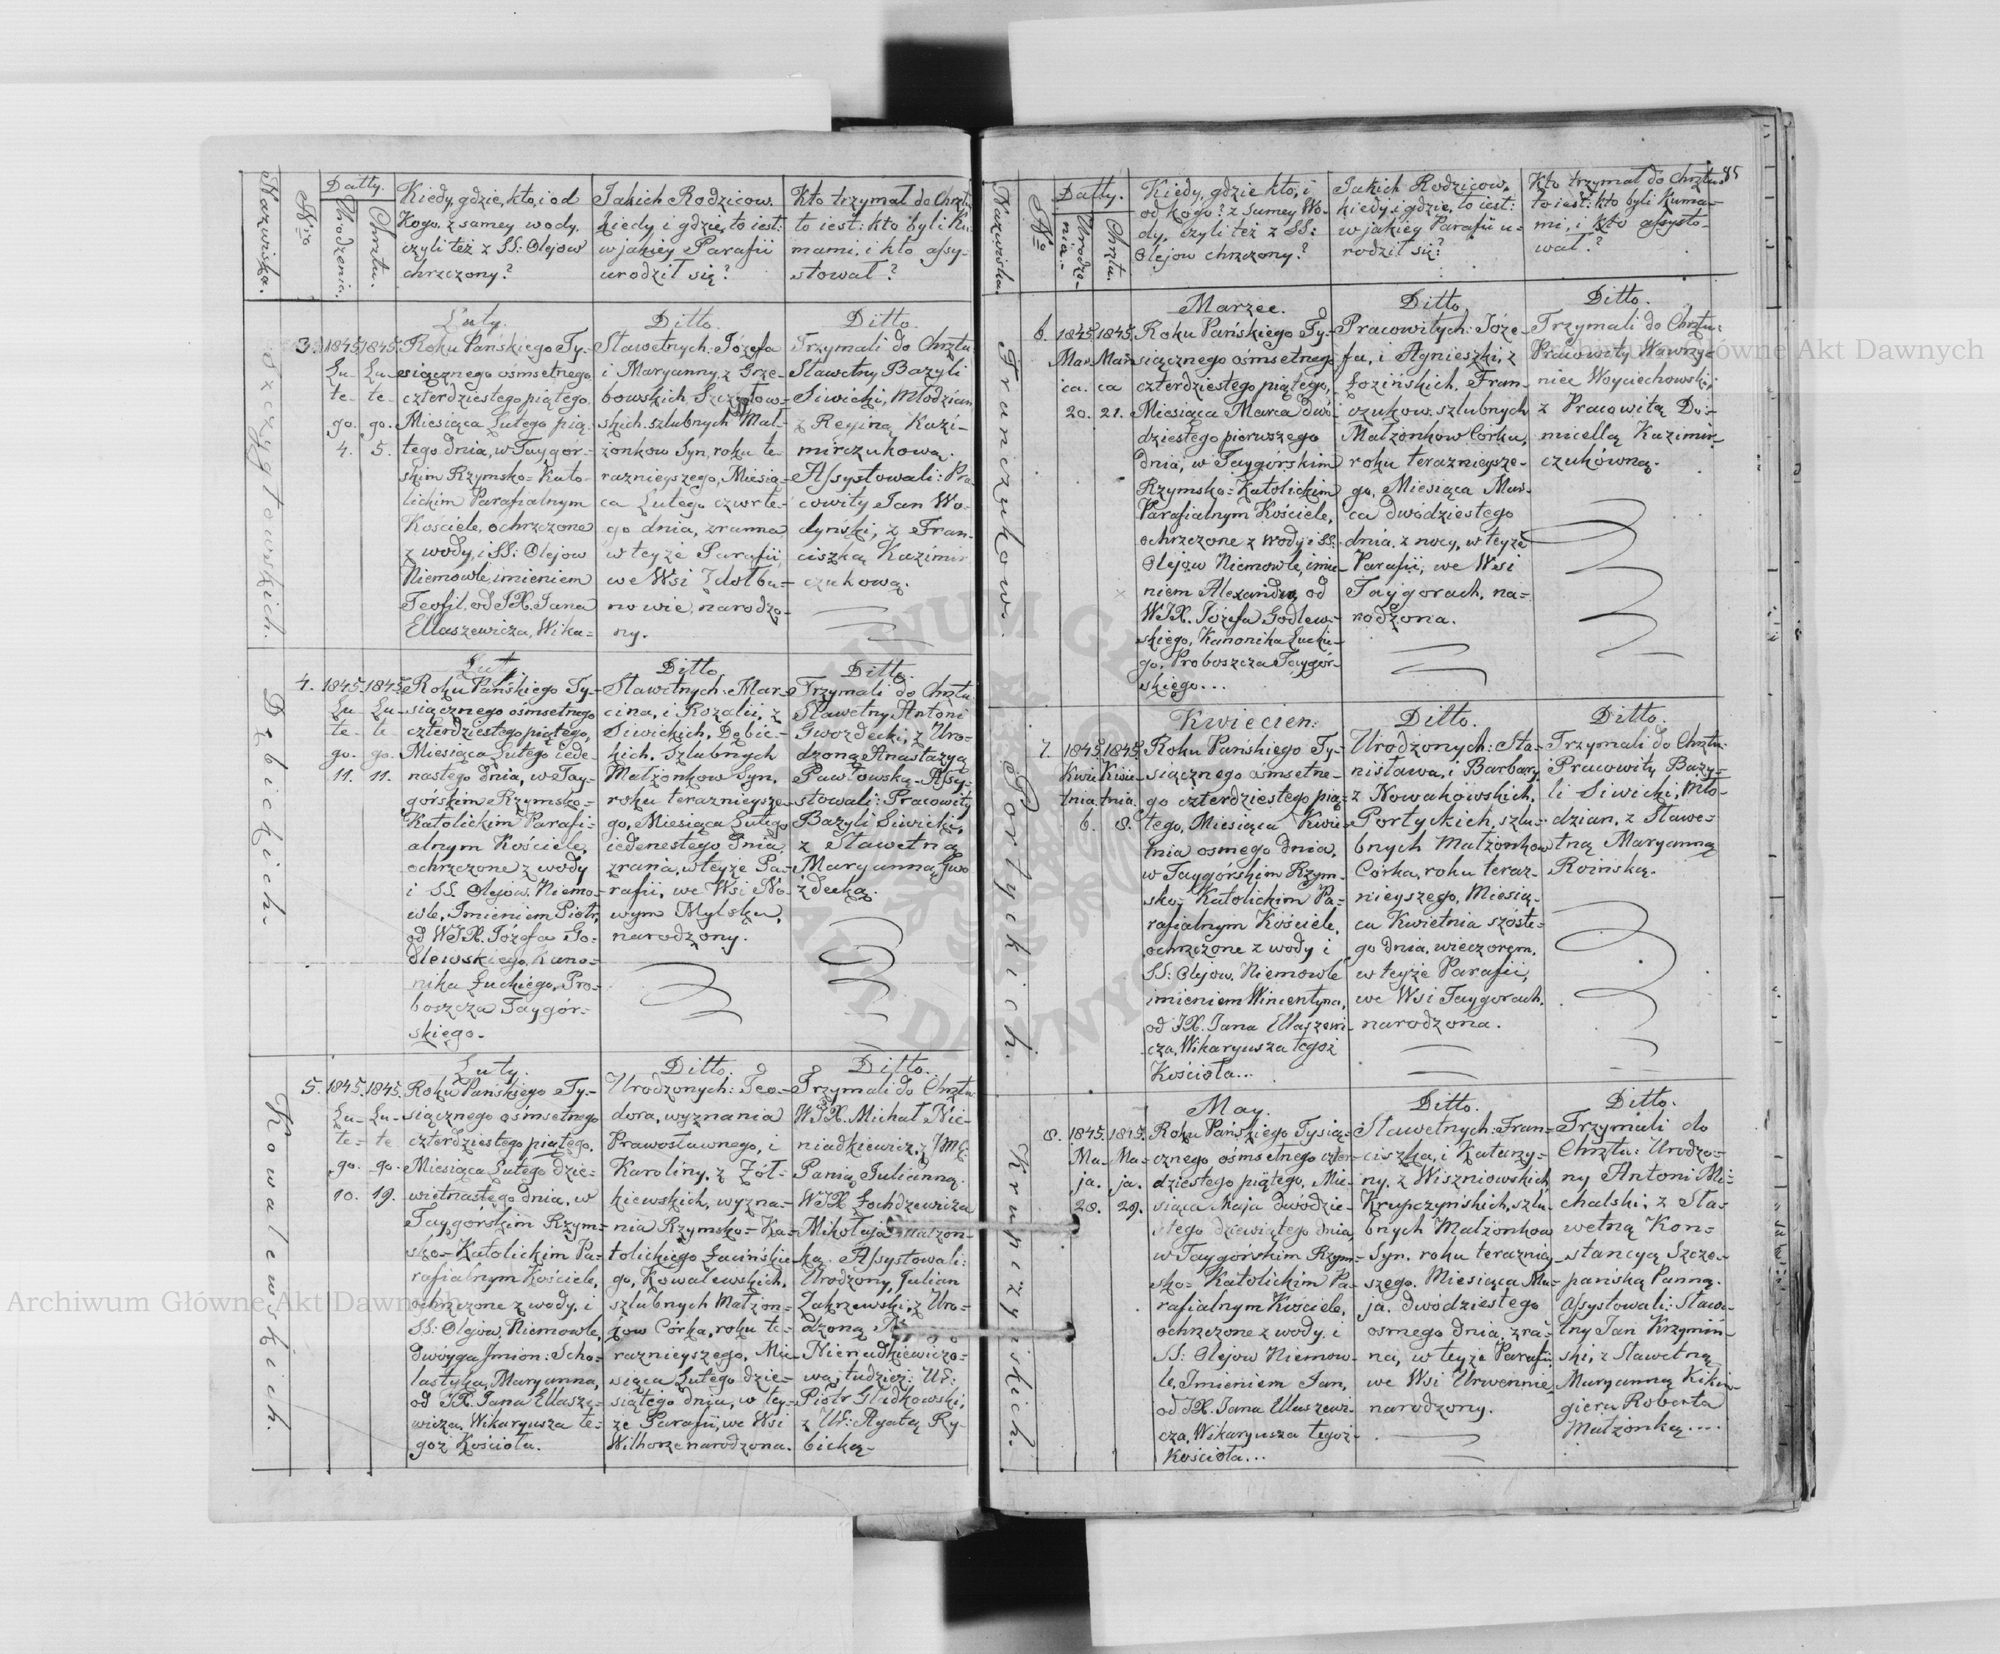 Nazwiska.
Nro
Datty.
Urodzenia.
Chrztu.
Kiedy, gdzie, kto, i od
Kogo, z samey wody,
czyli też z SS: Olejow
chrzczony?
Jakich Rodzicow.
Kiedy i gdzie, to iest:
w jakiey Parafii
urodził się?
Kto trzymał do Chrztu
to iest: kto byli Ku-
mami, i kto assy-
stował?
Szczygtowskich.
3.
1845.
Lu-
te-
go.
4.
1845.
Lu-
te-
go.
5.
Luty.
Roku Pańskiego Ty-
siącznego ośmsetnego
czterdziestego piątego,
Miesiąca Lutego pią-
tego dnia, w Taygor-
skim Rzymsko-Kato-
lickim Parafialnym
Kościele, ochrzczone
z wody, i SS: Olejow
Niemowle, imieniem
Teofil, od JX. Jana
Ellaszewicza, Wika-
Ditto.
Sławetnych: Józefa
i Maryanny, z Grze-
bowskich,
skich, szlubnych Mał-
żonkow Syn, roku te-
raznieyszego, Miesią-
ca Lutego czwarte-
go dnia, zranna
w teyże Parafii,
we Wsi Zdołbu-
nowie, narodzo-
ny.
Ditto.
Trzymali do Chrztu
Sławetny Bazyli
Siwicki, Młodzian
z Reginą Kazi-
mirczukową.
Assystowali: Pra
cowity Jan Wo-
łyński, z Fran-
ciszką Kazimir
czukową.
Dębickich.
4.
1845.
Lu-
te-
go.
11.
1845.
Lu-
te-
go.
11.
Luty.
Roku Pańskiego Ty-
siącznego ośmsetnego
czterdziestego piątego,
Miesiąca Lutego iede-
nastego dnia, w Tay-
górskim Rzymsko-
Katolickim Parafi-
alnym Kościele,
ochrzczone z wody
i SS. Olejow, Niemo-
wle, Imieniem Piotr,
od WJX. Józefa Go-
dlewskiego, Kano-
nika Łuckiego, Pro-
boszcza Taygór-
skiego.
Ditto.
Sławetnych: Mar-
cina, i Rozalii, z
Siwickich, Dębic-
kich, Szlubnych
Małżonkow Syn,
roku teraznieysze-
go, Miesiąca Lutego
iedenestego Dnia
zrania, w teyże Pa-
rafii, we Wsi No-
wym Mylsku,
narodzony.
Ditto.
Trzymali do Chrztu
Sławetny Antoni
Gwozdecki, z Uro-
dzoną Anastazyą
Pawłowską. Assy-
stowali: Pracowity
Bazyli Siwicki,
z Sławetną
Maryanną Gwo
zdecką.
Kowalewskich.
5.
1845.
Lu-
te-
go.
10.
1845.
Lu-
te
go.
19.
Luty.
Roku Pańskiego Ty-
siącznego ośmsetnego
czterdziestego piątego,
Miesiąca Lutego dzie-
wietnastego dnia, w
Taygórskim Rzym-
sko-Katolickim Pa-
rafialnym Kościele,
ochrzczone z wody, i
SS: Olejow, Niemowle,
dwóyga Imion: Scho-
lastyka, Maryanna,
od JX. Jana Ellasze-
wicza, Wikaryusza te-
goż Kościoła.
Ditto.
Urodzonych: Teo-
dora, wyznania
Prawosławnego, i
Karoliny, z Żół-
kiewskich, wyzna-
nia Rzymsko-Ka-
tolickiego Łacińskie
go, Kowalewskich,
szlubnych Małżon-
kow Córka, roku te-
raznieyszego, Mie-
siąca Lutego dzie-
siątego dnia, w tey-
że Parafii, we Wsi
Wilhorze narodzona.
Ditto.
Trzymali do Chrztu
WJX. Michał Nie-
niadkiewicz, z JMC:
Panią Julianną
WJX
Mikołaja Małżon-
ką. Assystowali:
Urodzony, Julian
Zakrzewski, z Uro-
dzoną
Nieniadkiewiczo-
wą, tudzież: Ur:
Piotr Gładkowski,
z Ur: Agatą Ry
bicką.
85
Nazwiska.
No
Datty.
Urodze-
nia.
Chrztu.
Kiedy, gdzie kto, i
od kogo? z samey Wo-
dy, czyli też z SS:
Olejow chrzczony?
Jakich Rodzicow,
kiedy i gdzie, to iest:
w jakiey Parafii u-
rodził się?
Kto trzymał do Chrztu
to iest: kto byli Kuma-
mi, i kto assysto-
wał?
Franczukow.
6.
1845.
Mar-
ca.
20.
1845.
Mar-
ca
21.
Marzec.
Roku Pańskiego Ty-
siącznego ośmsetnego
czterdziestego piątego,
Miesiąca Marca dwó-
dziestego pierwszego
dnia, w Taygórskim
Rzymsko-Katolickim
Parafialnym Kościele,
ochrzczone z Wody i SS.
Olejow Niemowle, imie-
niem Alexandra, od
WJX. Józefa Godlew-
skiego, Kanonika Łuckie-
go, Proboszcza Taygór-
skiego...
Ditto.
Pracowitych: Józe-
fa, i Agnieszki, z
Łozińskich, Fran-
czukow, szlubnych
Małżonkow Córka,
roku teraznieysze-
go, Miesiąca Mar-
ca dwódziestego
dnia, z nocy, w teyże
Parafii, we Wsi
Taygorach, na-
rodzona.
Ditto.
Trzymali do Chrztu:
Pracowity Wawrzy-
niec Woyciechowski,
z Pracowitą Do-
micellą Kazimir
czukówną.
Portyckich.
7.
1845.
Kwie-
tnia.
6.
1845.
Kwie-
tnia.
8.
Kwiecien:
Roku Pańskiego Ty-
siącznego ośmsetne-
go czterdziestego pią-
tego, Miesiąca Kwie-
tnia osmego dnia,
w Taygórskim Rzym-
sko-Katolickim Pa-
rafialnym Kościele,
ochrzczone z wody i
SS: Olejow, Niemowle
imieniem Wincentyna,
od JX. Jana Ellaszewi-
cza, Wikaryusza tegoż
Kościoła...
Ditto.
Urodzonych: Sta-
nisława, i Barbary
z Nowakowskich,
Portyckich, szlu-
bnych Małżonkow
Córka, roku teraz-
nieyszego, Miesią-
ca Kwietnia szóste-
go dnia, wieczorem,
w teyże Parafii,
we Wsi Taygorach,
narodzona.
Ditto.
Trzymali do Chrztu:
Pracowity Bazy-
li Siwicki, Mło-
dzian, z Sławe-
tną Maryanną
Roińską.
Krupczyńskich.
8.
1845.
Ma-
ja.
28.
1845.
Ma-
ja.
29.
May.
Roku Pańskiego Tysią-
cznego ośmsetnego czter-
dziestego piątego, Mie-
siąca Maja dwódzie-
stego dziewiątego dnia,
w Taygórskim Rzym-
sko-Katolickim Pa-
rafialnym Kościele,
ochrzczone z wody, i
SS: Olejow Niemow-
le, Imieniem Jan,
od JX. Jana Ellaszewi-
cza, Wikaryusza tegoż
Kościoła...
Ditto.
Sławetnych: Fran-
ciszka, i Katarzy-
ny, z Wiszniowskich,
Krupczyńskich, szlu-
bnych Małżonkow
Syn, roku teraźniey-
szego, Miesiąca Ma-
ja, dwódziestego
osmego dnia, zra-
na, w teyże Parafii,
we Wsi Urwennie
narodzony.
Ditto.
Trzymali do
Chrztu: Urodzo-
ny Antoni Mi-
chalski, z Sła-
wetną Kon-
stancyą Szcze-
pańską Panną.
Assystowali: Sławe-
tny Jan Krzymiń-
ski, z Sławetną
Maryanną Kikin-
giera Roberta
Małżonką....
Archiwum Główne Akt Dawnych
Archiwum Główne Akt Dawnych